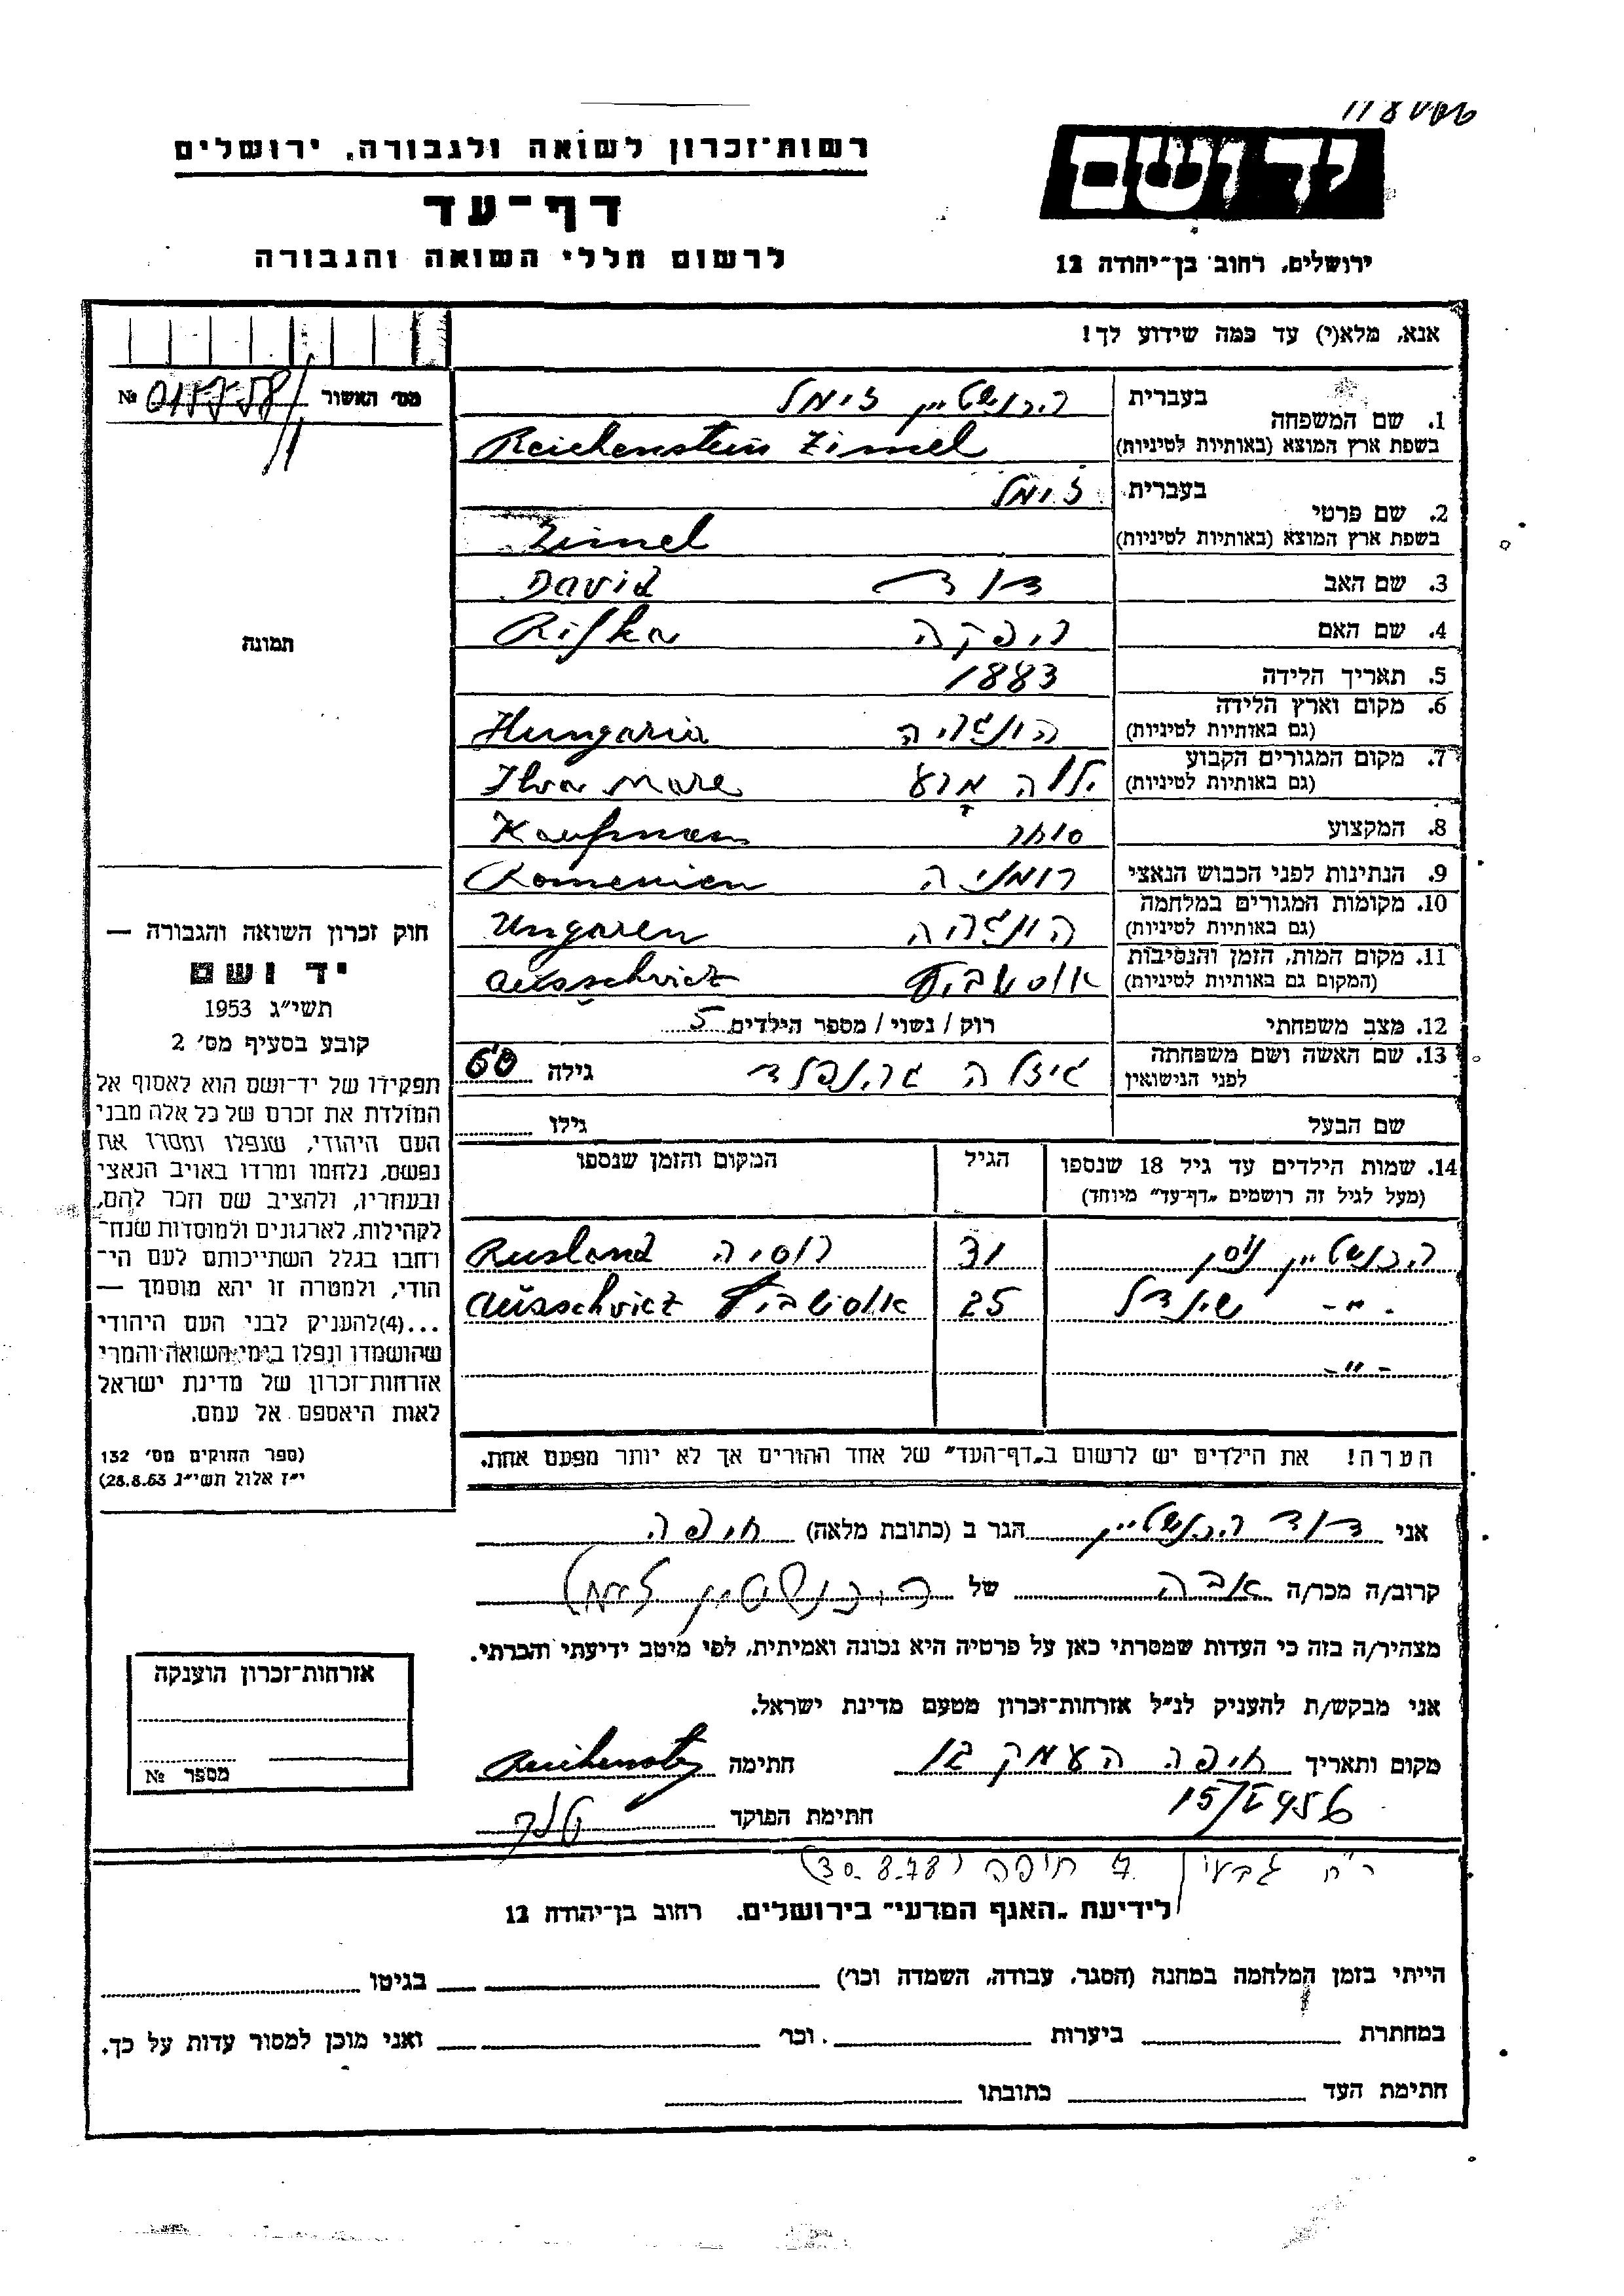 רשות־זכרון לשואה ולגבורה, ירושלים
דף־עד
לרשום חללי השואה והגבורה
יד ושם
ירושלים, רחוב בן־יהודה 12
אנא, מלא(י) עד כמה שידוע לך!
מס׳ האשור №
1. שם המשפחה
בעברית
זימל
בשפת ארץ המוצא (באותיות לטיניות)
Reichenstein Zimel
2. שם פרטי
בעברית
זימל
בשפת ארץ המוצא (באותיות לטיניות)
Zimel
3. שם האב דוד David
4. שם האם רפקה Rifka
5. תאריך הלידה 1883
6. מקום וארץ הלידה
(גם באותיות לטיניות)
Hungaria
7. מקום המגורים הקבוע
(גם באותיות לטיניות)
Ilva Mare
8. המקצוע סוחר Kaufman
9. הנתינות לפני הכבוש הנאצי רומניה Romenien
10. מקומות המגורים במלחמה
(גם באותיות לטיניות)
Ungaren
11. מקום המות, הזמן והנסיבות
(המקום גם באותיות לטיניות)
Ausschvicz
12. מצב משפחתי רוק / נשוי / מספר הילדים 5
13. שם האשה ושם משפחתה
לפני הנישואין
גיזלה גרינפלד גילה 60
שם הבעל גילו
14. שמות הילדים עד גיל 18 שנספו
(מעל לגיל זה רושמים „דף־עד״ מיוחד)
הגיל
המקום והזמן שנספו
31 רוסיה Rusland
-״- שינדל 25 Ausschvicz
-״-
הערה! את הילדים יש לרשום ב„דף־העד״ של אחד ההורים אך לא יותר מפעם אחת.
תמונה
חוק זכרון השואה והגבורה —
יד ושם
תשי״ג 1953
קובע בסעיף מס׳ 2
תפקידו של יד־ושם הוא לאסוף אל
המולדת את זכרם של כל אלה מבני
העם היהודי, שנפלו ומסרו את
נפשם, נלחמו ומרדו באויב הנאצי
ובעוזריו, ולהציב שם וזכר להם,
לקהילות, לארגונים ולמוסדות שנח־
רחבו בגלל השתייכותם לעם הי־
הודי, ולמטרה זו יהא מוסמך —
...(4)להעניק לבני העם היהודי
שהושמדו ונפלו בימי השואה והמרי
אזרחות־זכרון של מדינת ישראל
לאות היאספם אל עמם.
(ספר החוקים מס׳ 132
י״ז אלול תשי״ג 28.8.53)
אני דוד הגר ב (כתובת מלאה) חיפה
קרוב/ה מכר/ה אבה של
מצהיר/ה בזה כי העדות שמסרתי כאן על פרטיה היא נכונה ואמיתית, לפי מיטב ידיעתי והכרתי.
אני מבקש/ת להעניק לנ״ל אזרחות־זכרון מטעם מדינת ישראל.
מקום ותאריך חיפה העמק חתימה
חתימת הפוקד
אזרחות־זכרון הוענקה
מספר №
חיפה (30.8.78)
לידיעת „האגף המדעי״ בירושלים. רחוב בן־יהודה 12
הייתי בזמן המלחמה במחנה (הסגר, עבודה, השמדה וכו׳) בגיטו
במחתרת ביערות וכו׳ ואני מוכן למסור עדות על כך.
חתימת העד כתובתו